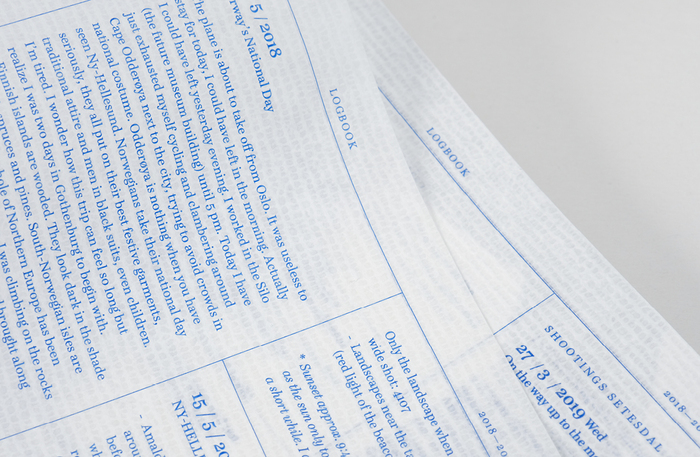 5 / 2018
rway's National Day
he plane is about to take off from Oslo. It was useless to
stay for today, I could have left in the morning. Actually
I could have left yesterday evening. I worked in the Silo
(the future museum building) until 5 pm. Today I have
just exhausted myself cycling and clambering around
Cape Odderøya next to the city, trying to avoid crowds in
national costume. Odderøya is nothing when you have
seen Ny-Hellesund. Norwegians take their national day
seriously, they all put on their best festive garments,
traditional attire and men in black suits, even children.
I'm tired. I wonder how this trip can feel so long but
realize I was two days in Gothenburg to begin with.
Finnish islands are wooded. They look dark in the shade
spruces and pines. South-Norwegian isles are
ole of Northern Europe has been
I was climbing on the rocks
brought along
LOGBOOK
15 / 5 / 20
NY-HELL
- Amald
arou
befo
Only the landscape when
wide shot: 4107
- Landscapes near the ta
(red light of the beaco
* Sunset approx. 9:4
as the sun only to
a short while. I
2018–2
LOGBOOK
SHOOTINGS SETESDAL
27 / 3 / 2019 Wed
On the way up to the m
2018–2